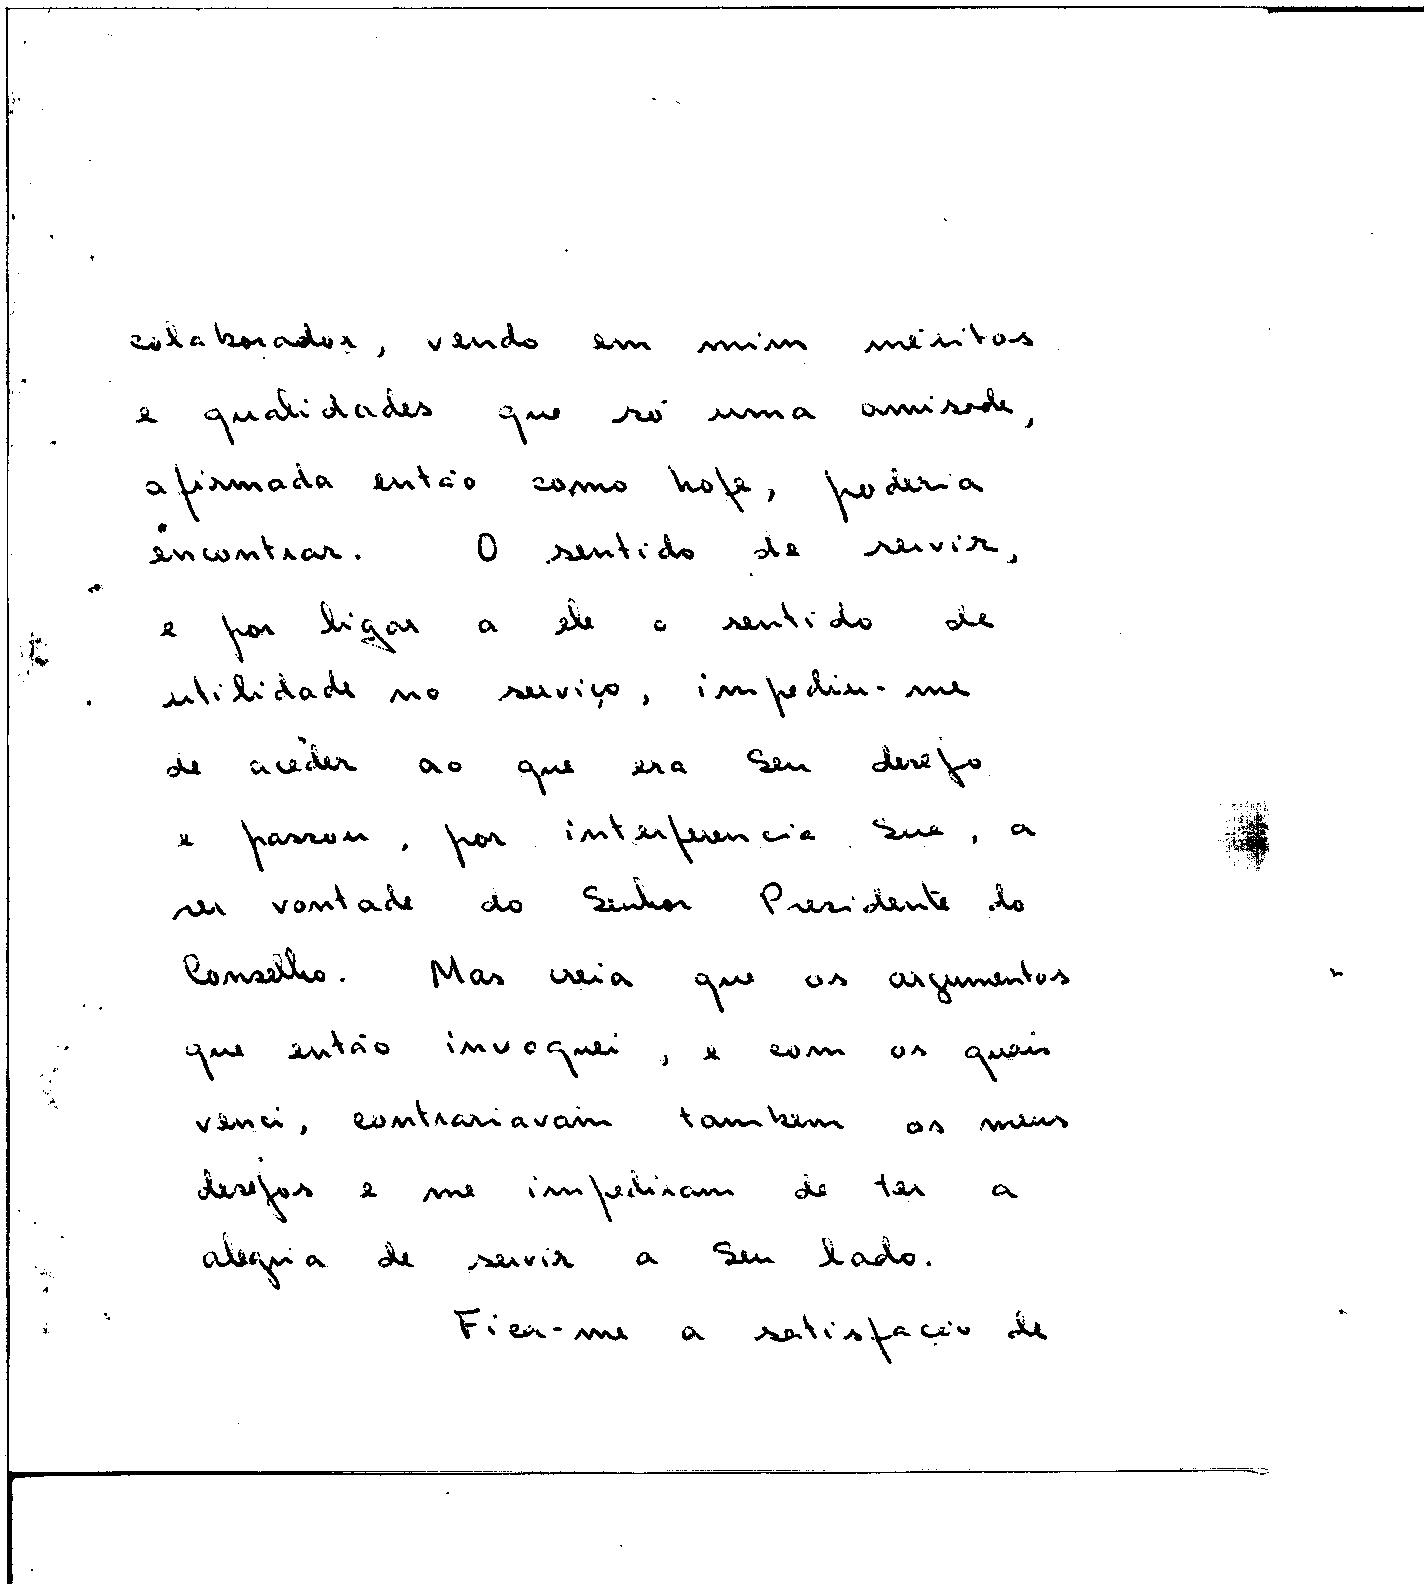 colaborador, vendo em mim méritos
e qualidades que só uma amisade,
afirmada então como hoje, poderia
encontrar. O sentido de servir,
e por ligar a ele o sentido de
utilidade no serviço, impediu-me
de aceder ao que era Seu desejo
e passou, por interferencia Sua, a
ser vontade do Senhor Presidente do
Conselho. Mas creia que os argumentos
que então invoquei, e com os quais
venci, contrariavam tambem os meus
desejos e me impediram de ter a
alegria de servir a Seu lado.
Fica-me a satisfação de